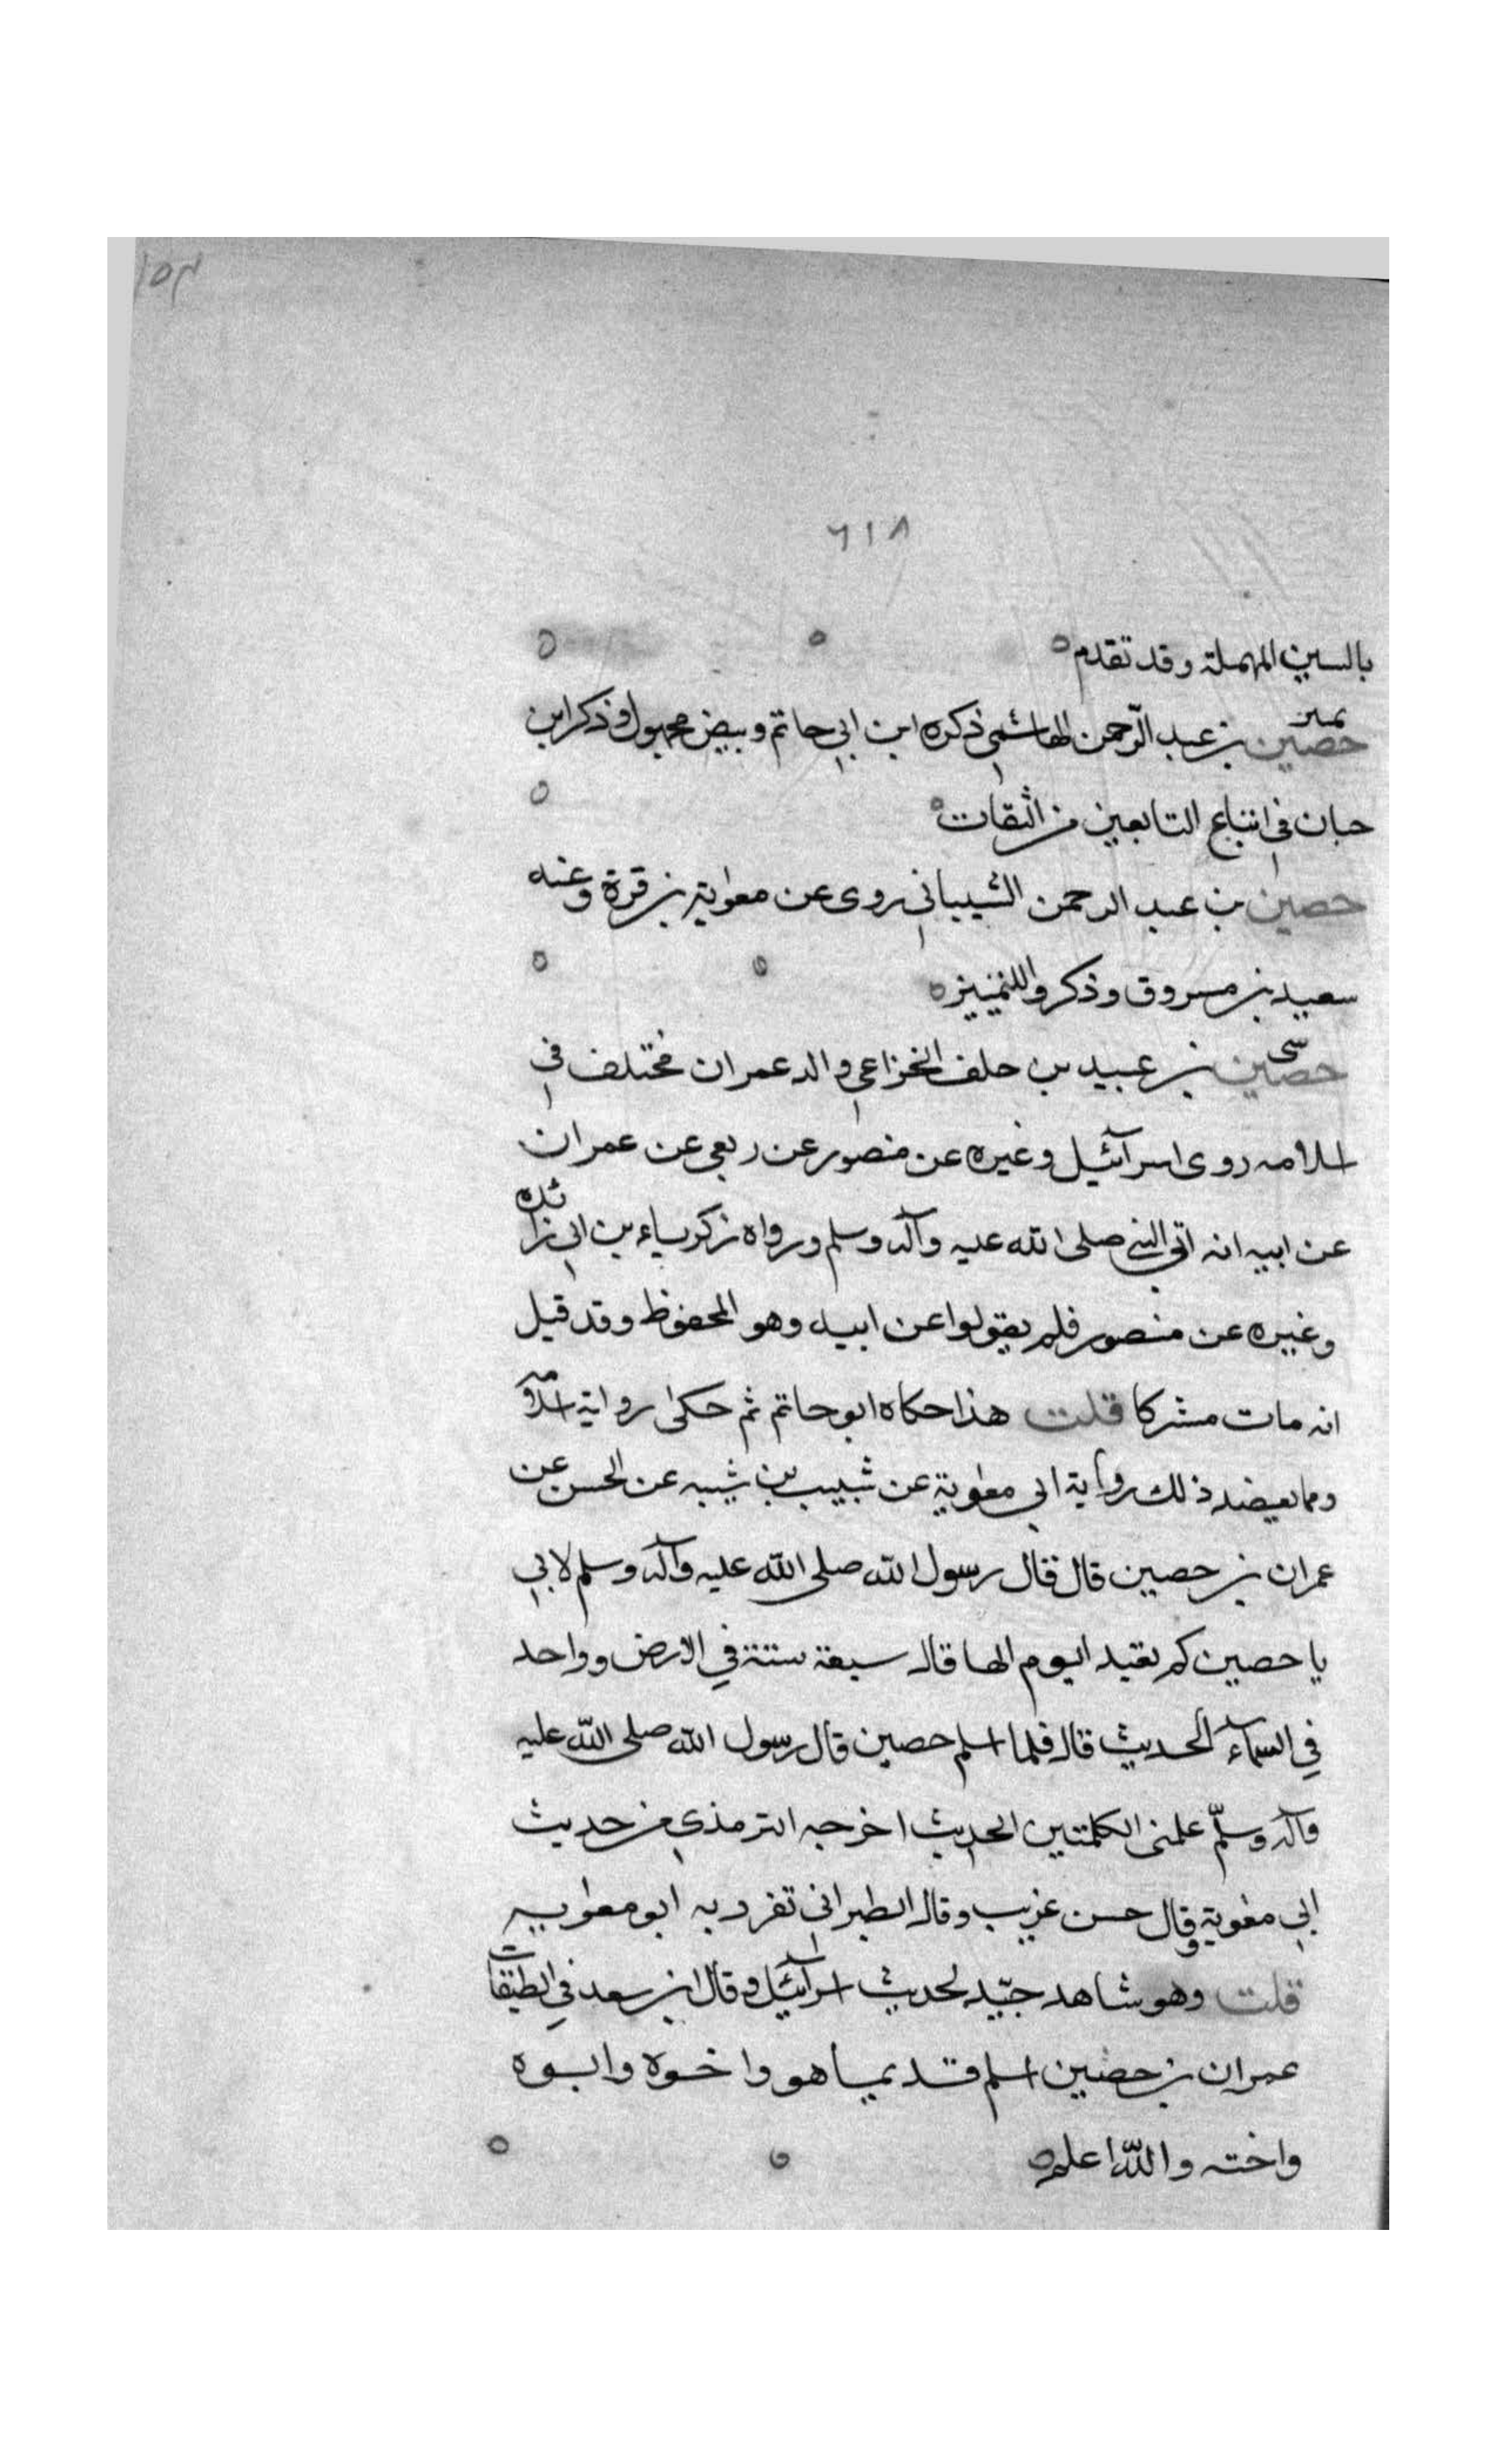 ١٥٣
٦١٨
بالسين المهملة وقد تقدم
تمييز
حصين بن عبد الرّحمن الهاشمي ذكره ابن ابي حاتم وبيض مجهول وذكر ابن
حبان في اتباع التابعين من الثقات
حصين بن عبد الرحمن الشيباني روى عن معوية بن قرة وعنه
سعيد بن مسروق وذكر واللتمييز
سى
حصين بن عبيد بن خلف الخزاعي والد عمران مختلف في
اسلامه روى اسرآئيل وغيره عن منصور عن ربعي عن عمران
عن ابيه انه اتى النبي صلى الله عليه وآله وسلم ورواه زكرياء بن ابي زائده
وغيره عن منصور فلم يقولوا عن ابيه وهو المحفوظ وقد قيل
انه مات مشركا قلت هذا حكاه ابو حاتم ثم حكى رواية اسلامه
ومما يعضد ذلك رواية ابي معوية عن شبيب بن شيبه عن الحسن عن
عمران بن حصين قال قال رسول الله صلى الله عليه وآله وسلم لابي
يا حصين كم تعبد اليوم الها قال سبعة ستة في الارض وواحد
في السماء الحديث قال فلما اسلم حصين قال رسول الله صلى الله عليه
وآله وسلّم علمنى الكلمتين الحديث اخرجه الترمذي من حديث
ابي معوية وقال حسن غريب وقال الطبراني تفرد به ابو معوية
قلت وهو شاهد جيّد لحديث اسرآئيل وقال ابن سعد في الطبقات
عمران بن حصين اسلم قديما هو واخوه وابوه
واخته والله اعلم